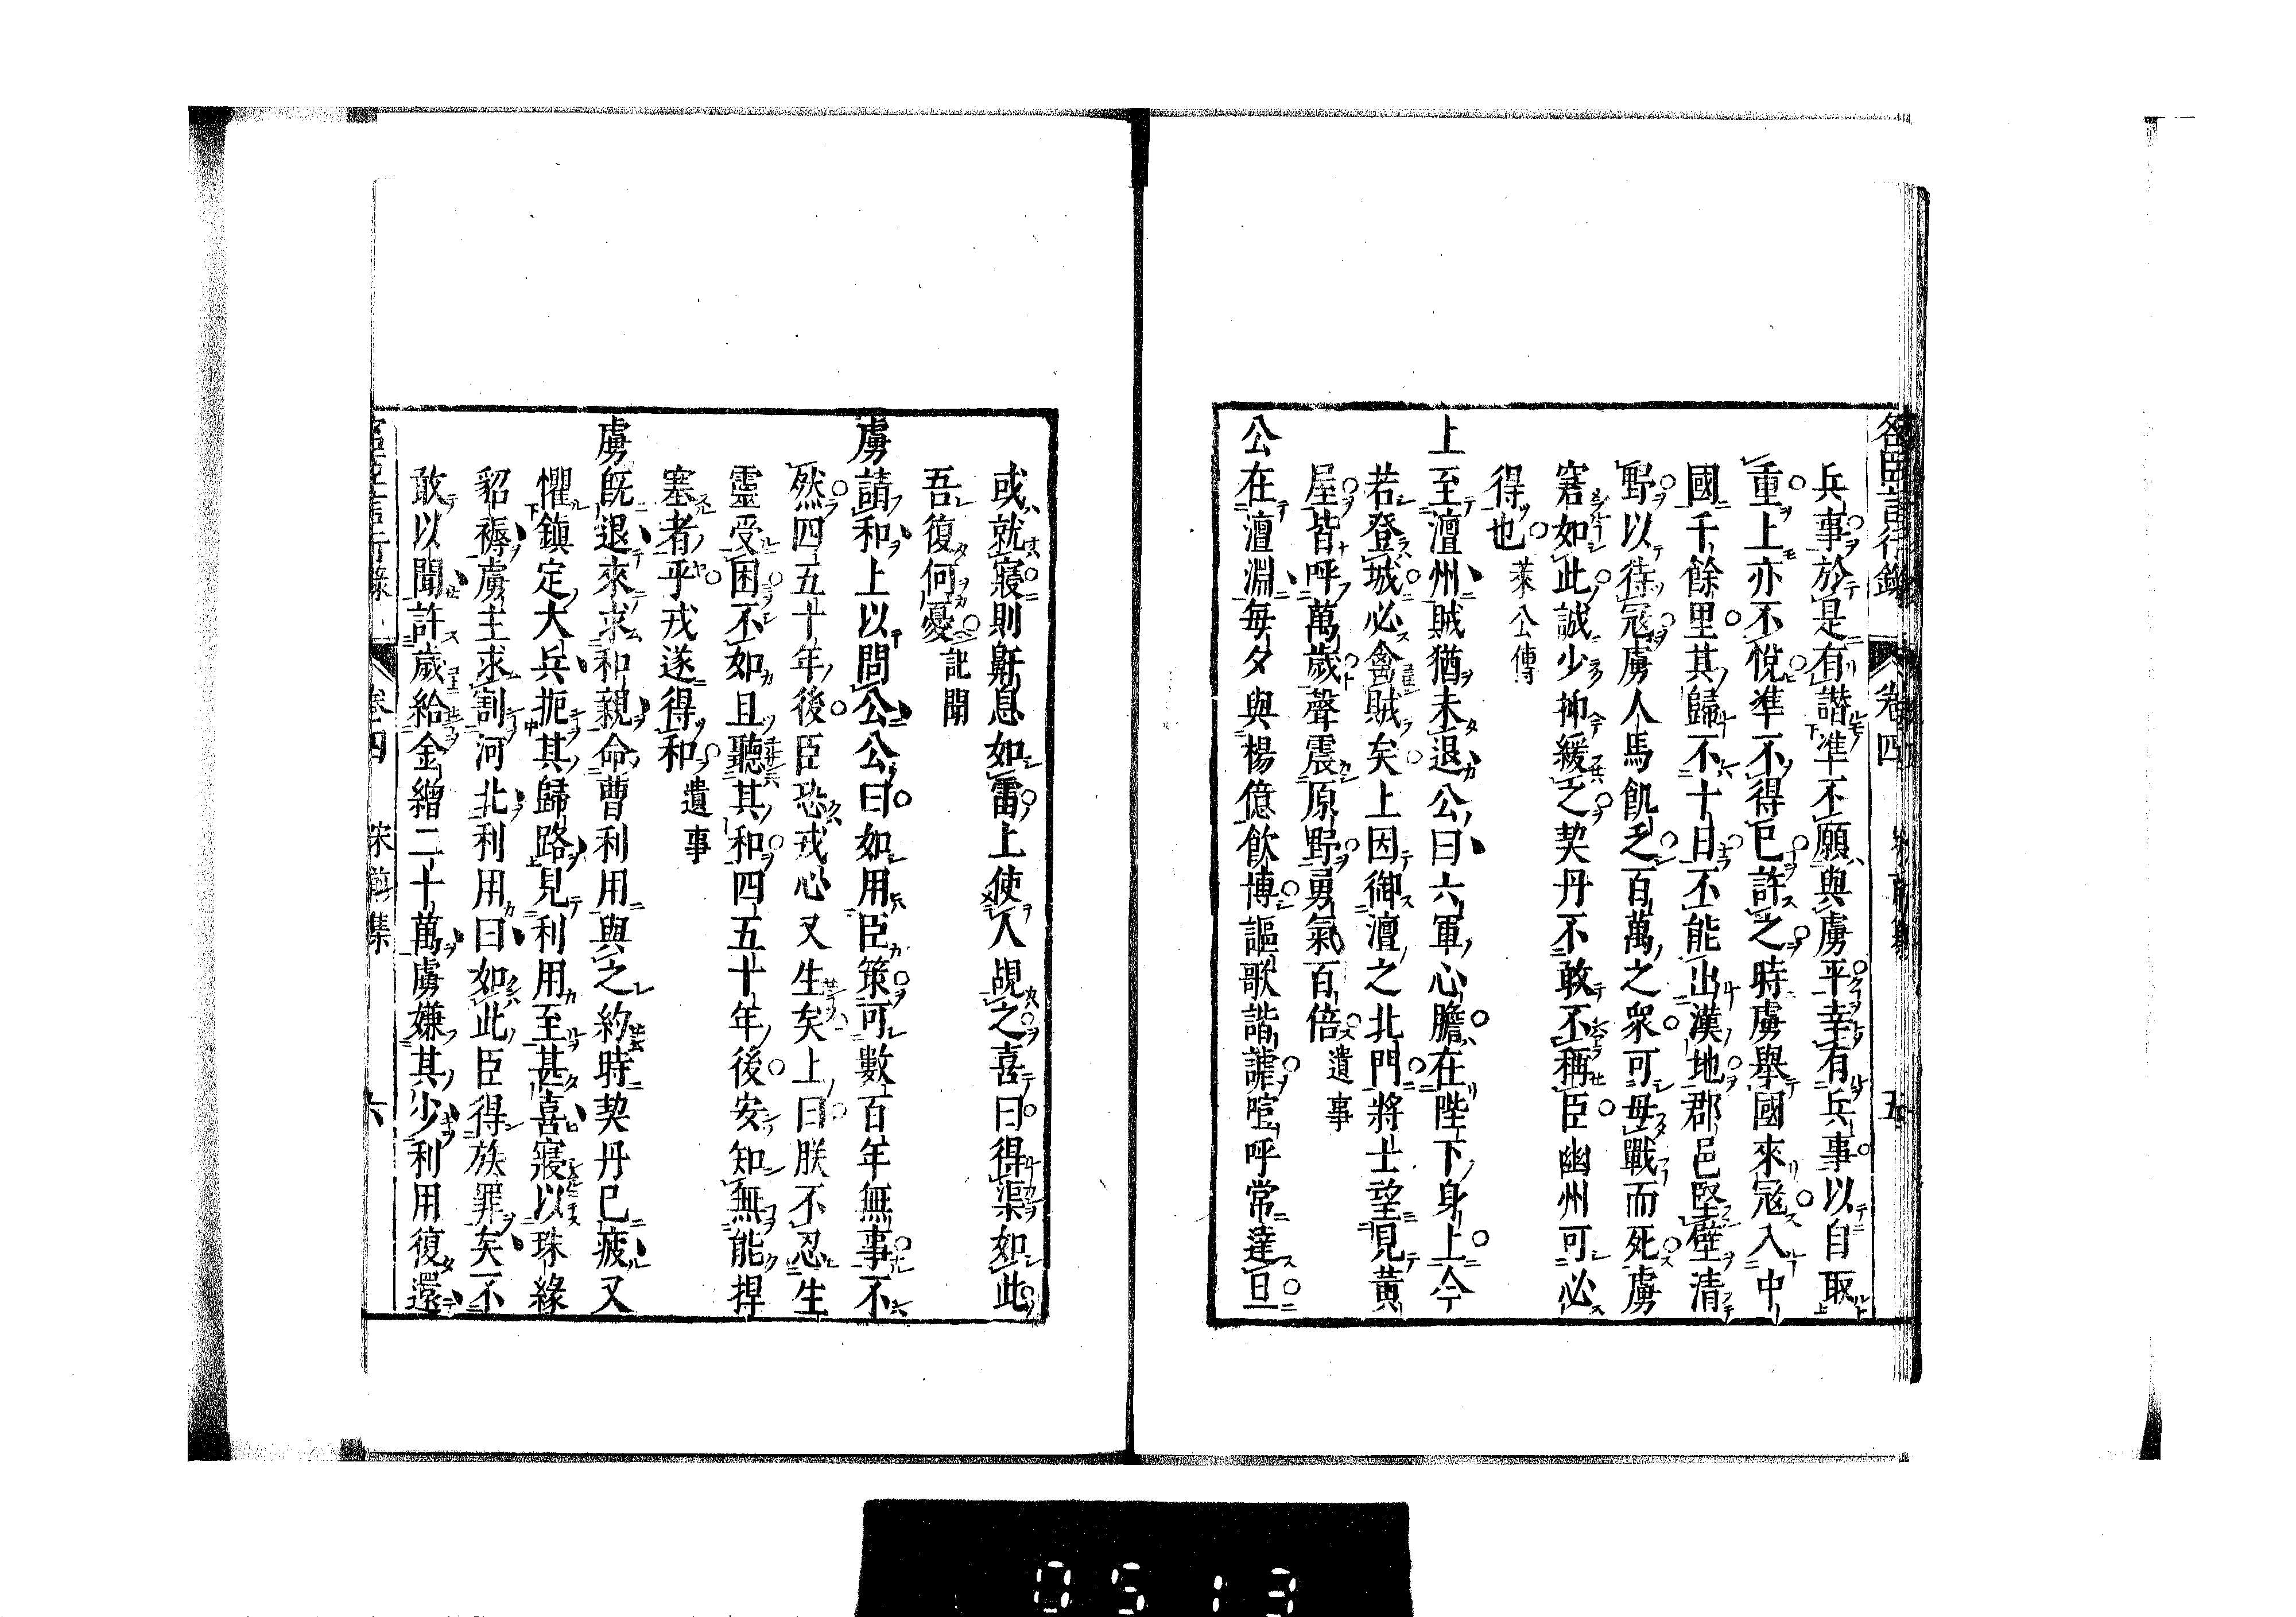 名臣言行錄 卷四 五
兵事於是有譛準不願與虜平幸有兵事以自取
重上亦不悅準不得已許之時虜舉國來冦入中
國千餘里其歸不十日不能出漢地郡邑堅壁清
野以待冦虜人馬飢乏百萬之衆可毋戰而死虜
窘如此誠少抑緩之契丹不敢不稱臣幽州可必
得也 萊公傳
上至澶州賊猶未退公曰六軍心膽在陛下身上今
若登城必禽賊矣上因御澶之北門將士望見黃
屋皆呼萬歲聲震原野勇氣百倍 遺事
公在澶淵每夕與楊億飲博謳歌諧謔喧呼常達旦
或就寢則鼾息如雷上使人覘之喜曰得渠如此
吾復何憂 記聞
虜請和上以問公公曰如用臣策可數百年無事不
然四五十年後臣恐戎心又生矣上曰朕不忍生
靈受困不如且聽其和四五十年後安知無能捍
塞者乎戎遂得和 遺事
虜旣退來求和親命曹利用與之約時契丹已疲又
懼鎮定大兵扼其歸路見利用至甚喜寢以珠緣
貂褥虜主求割河北利用曰如此臣得族罪矣不
敢以聞許歲給金繒二十萬虜嫌其少利用復還
卷四 宋前集 六
0513